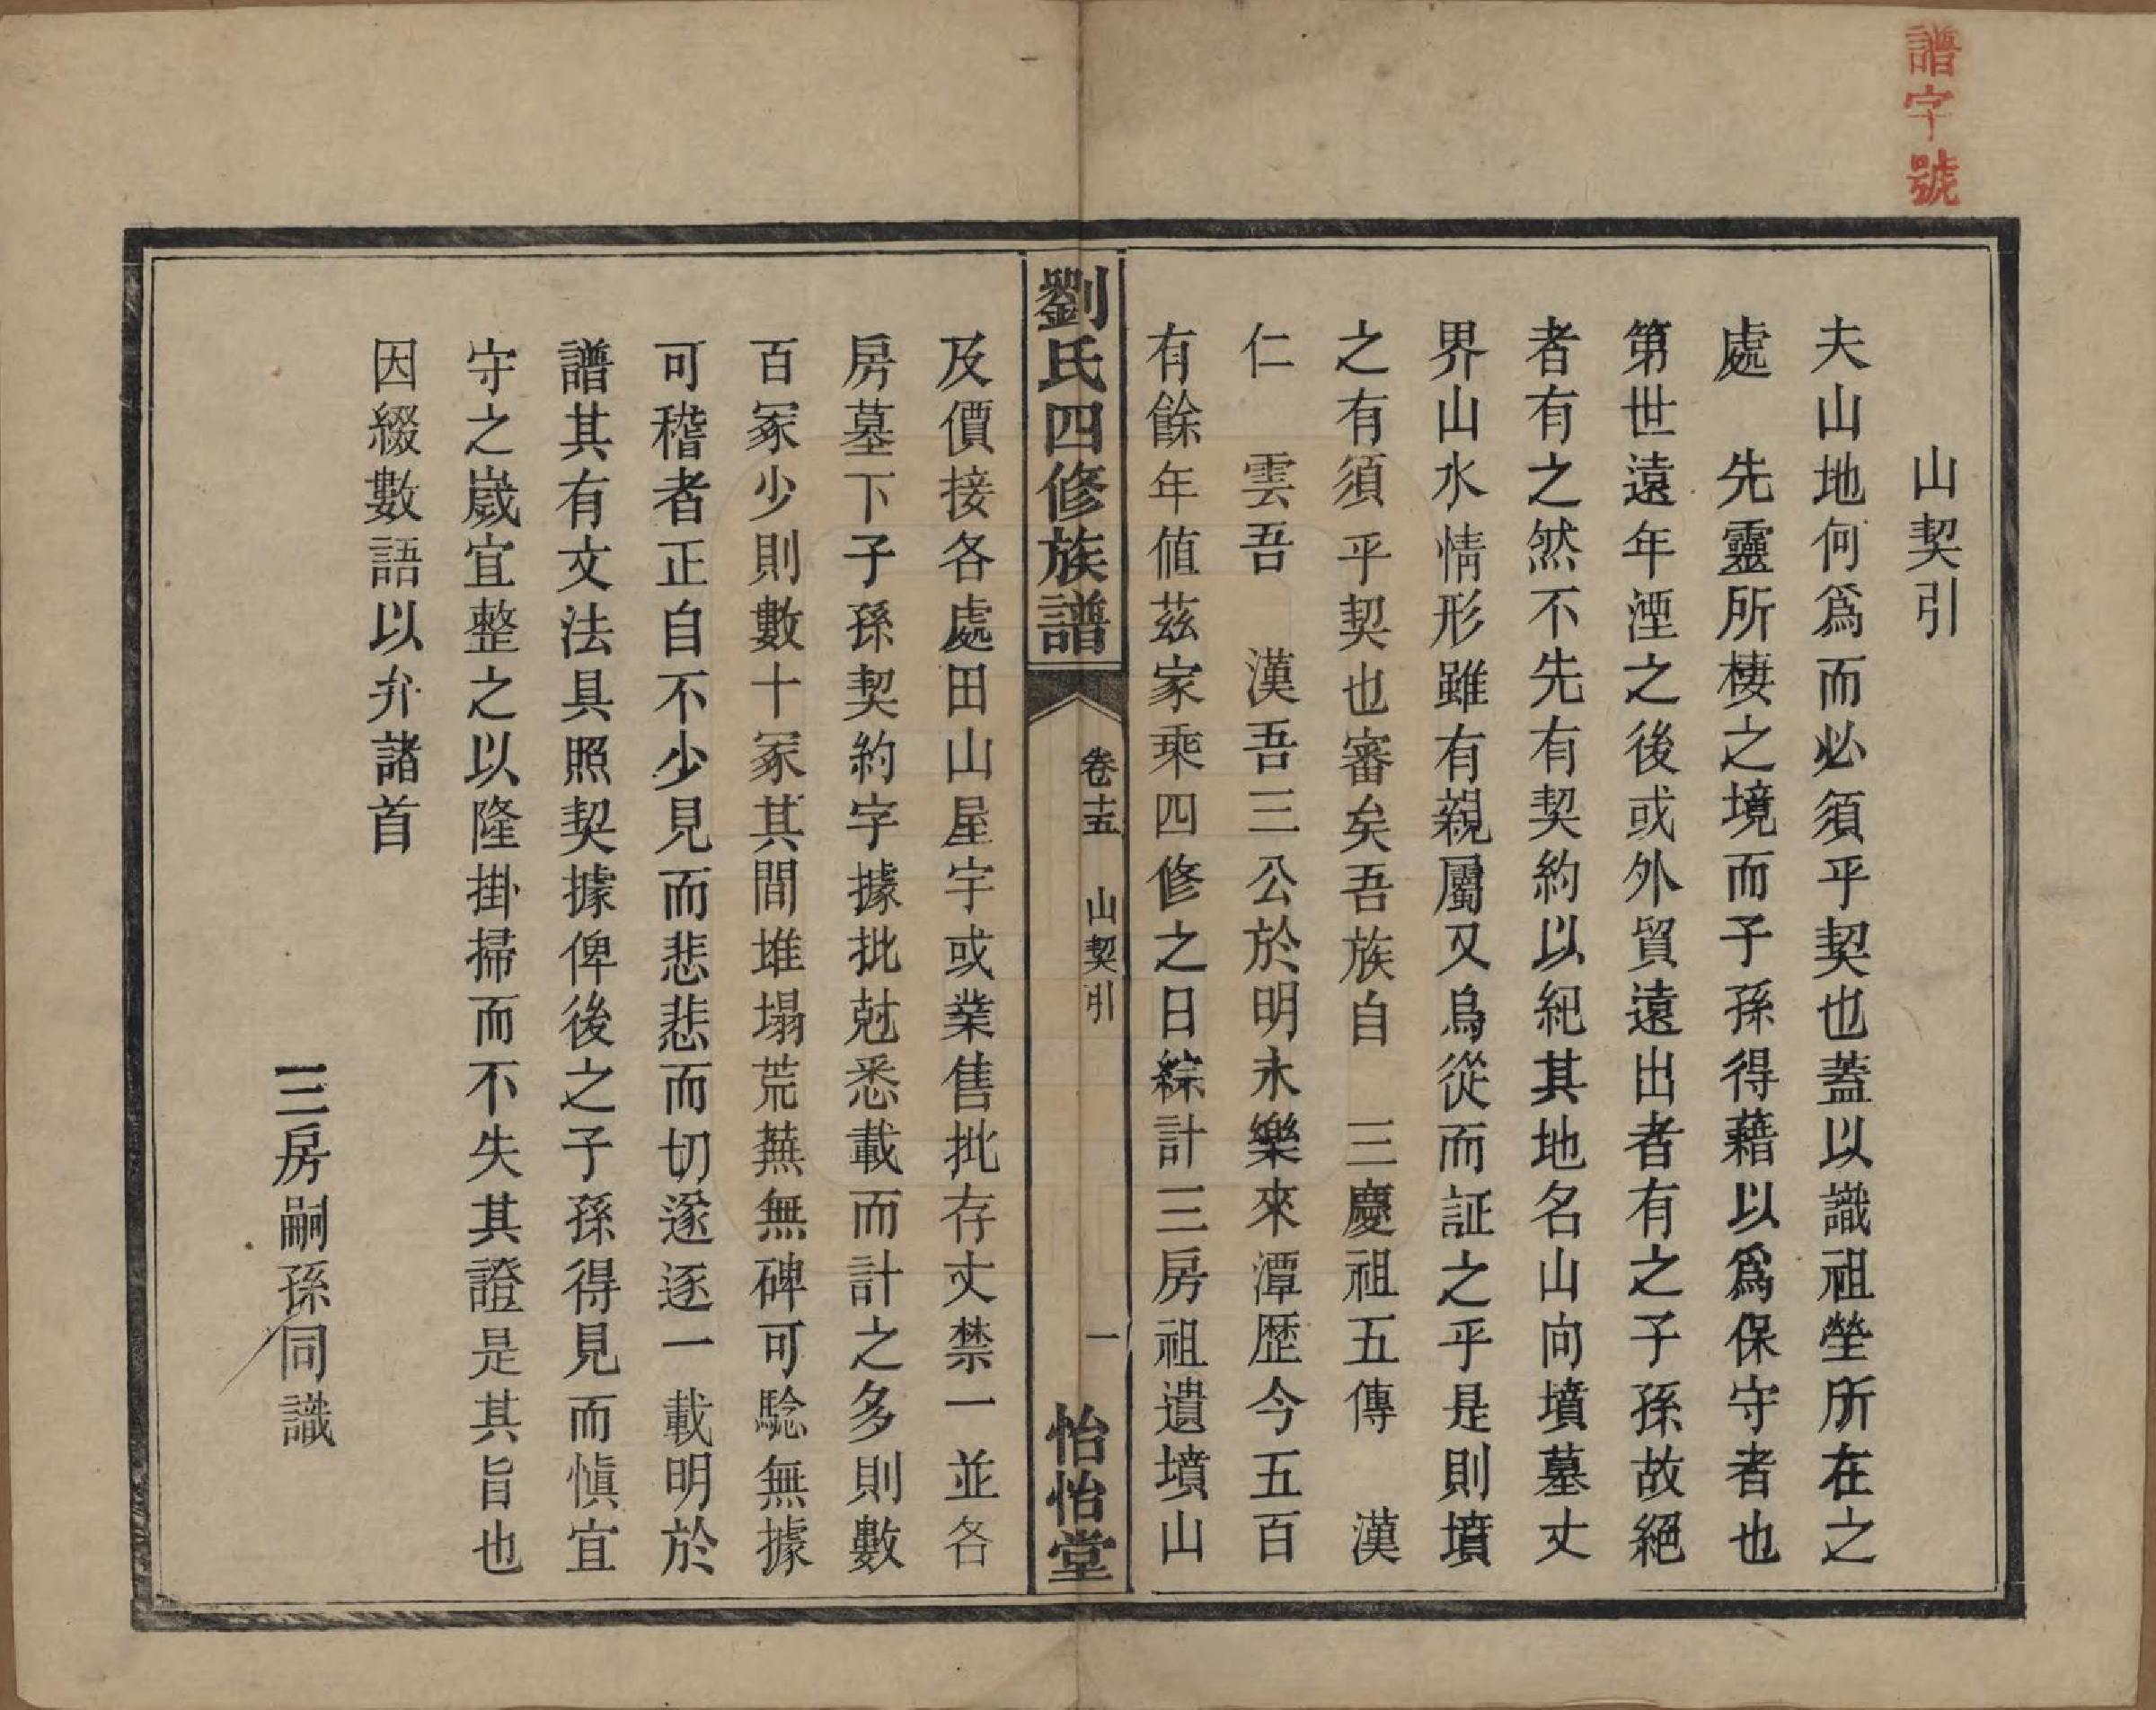 譜字號
山契引
夫山地何爲而必須乎契也蓋以識祖塋所在之
處　先靈所棲之境而子孫得藉以爲保守者也
第世遠年湮之後或外貿遠出者有之子孫故絕
者有之然不先有契約以紀其地名山向墳墓丈
界山水情形雖有親屬又烏從而証之乎是則墳
之有須乎契也審矣吾族自　三慶祖五傳　漢
仁　雲吾　漢吾三公於明永樂來潭歷今五百
有餘年值茲家乘四修之日綜計三房祖遺墳山
劉氏四修族譜　卷十五　山契引　一　怡怡堂
及價接各處田山屋宇或業售批存丈禁一並各
房墓下子孫契約字據批尅悉載而計之多則數
百冢少則數十冢其間堆塌荒蕪無碑可騐無據
可稽者正自不少見而悲悲而切遂逐一載明於
譜其有文法具照契據俾後之子孫得見而愼宜
守之嵗宜整之以隆掛掃而不失其證是其旨也
因綴數語以弁諸首
三房嗣孫同識